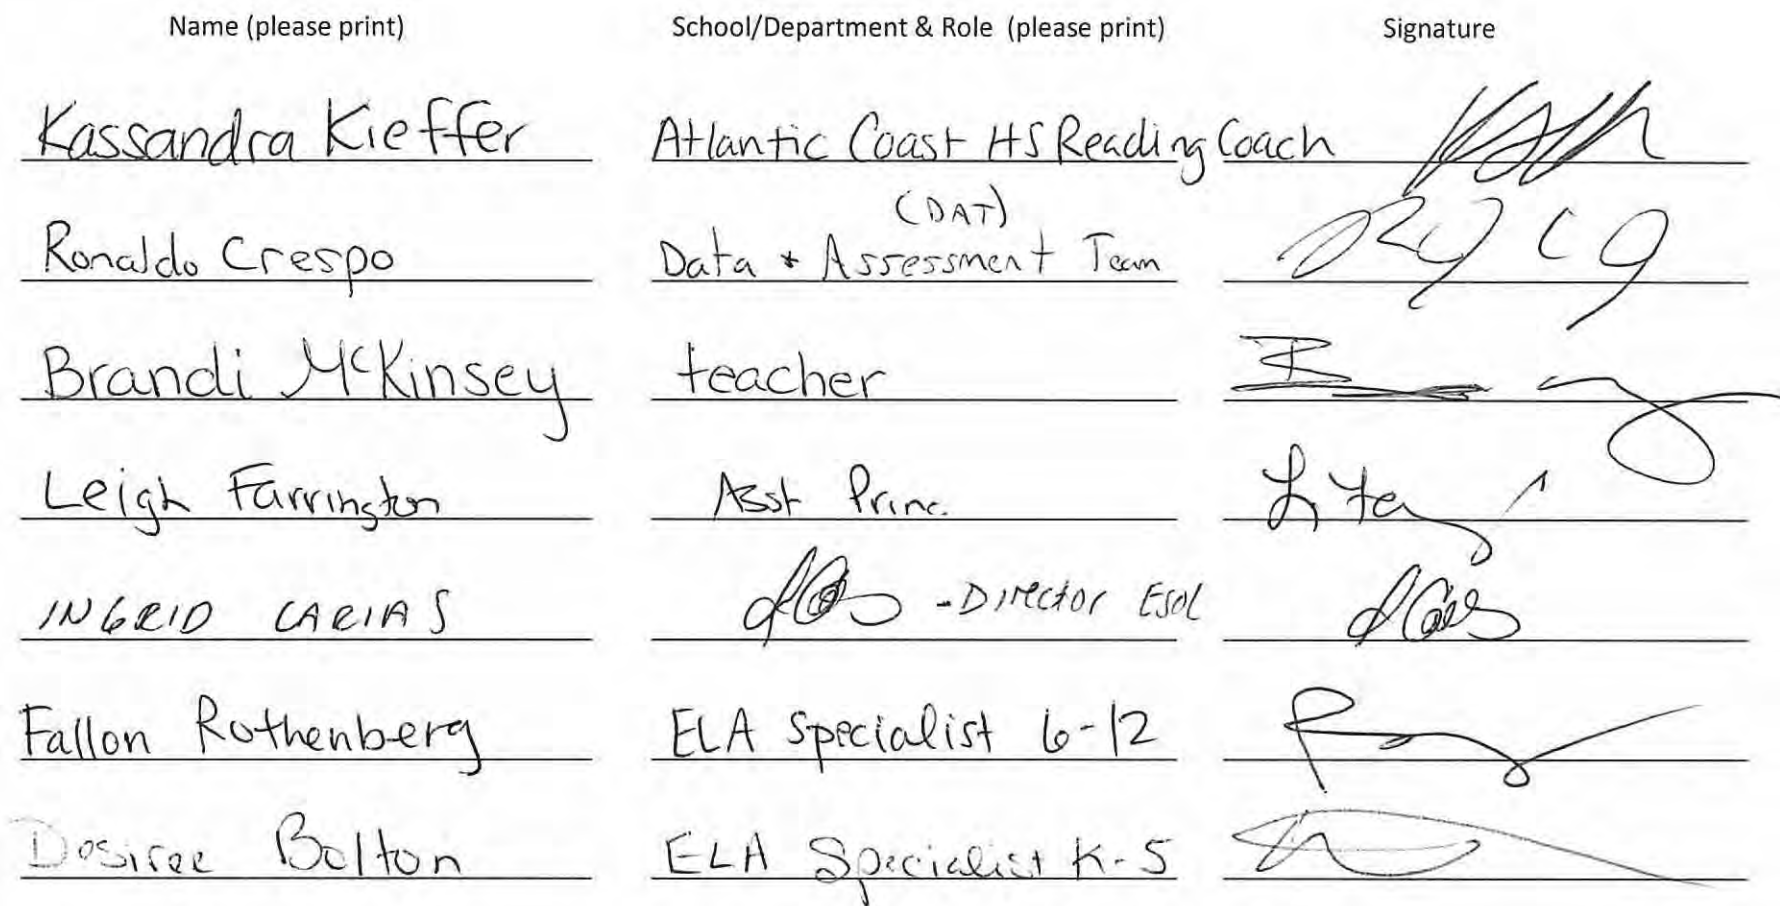 Name (please print) School/Department & Role (please print) Signature
Kassandra Kieffer Atlantic Coast HS Reading Coach
(DAT)
Ronaldo Crespo Data & Assessment Team
Brandi McKinsey teacher
Leigh Farrington Asst Princ.
INGRID CARIAS - Director ESOL
Fallon Rothenberg ELA Specialist 6-12
Desiree Bolton ELA Specialist K-5